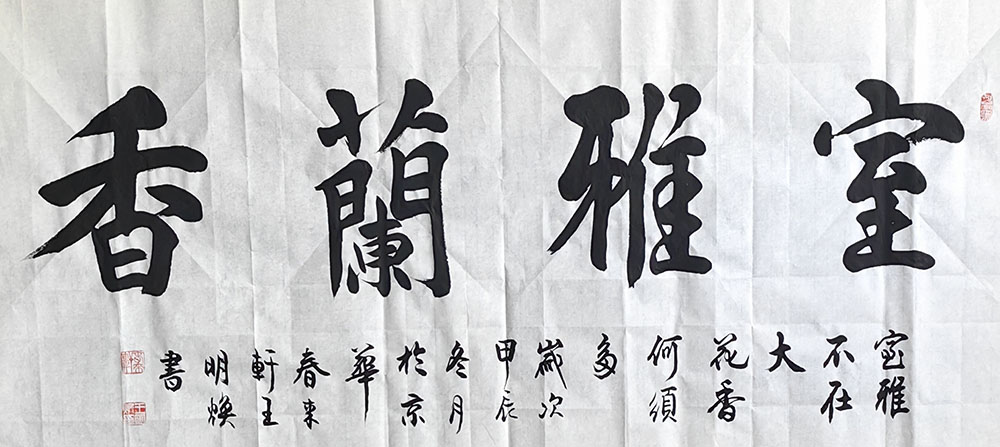 室雅蘭香
室雅
不在
大
花香
何須
多
歲次
甲辰
冬月
於京
華
春來
軒王
明煥
書